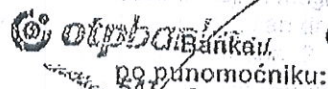 otpbanka
Banka:
po punomoćniku: